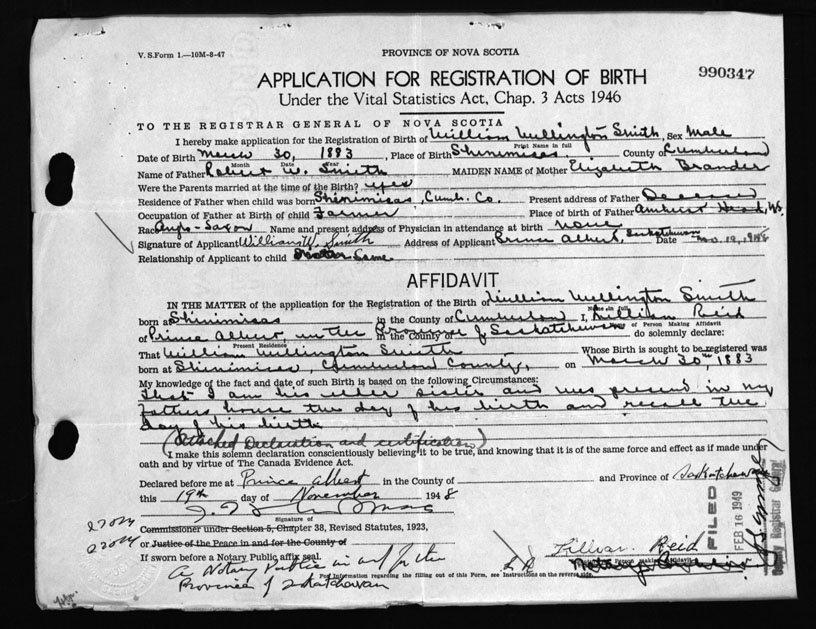 V. S. Form 1.—10M-8-47
PROVINCE OF NOVA SCOTIA
990347
APPLICATION FOR REGISTRATION OF BIRTH
Under the Vital Statistics Act, Chap. 3 Acts 1946
TO THE REGISTRAR GENERAL OF NOVA SCOTIA
I hereby make application for the Registration of Birth of William Wellington Smith, Sex Male
Print Name in full
Date of Birth March 30, 1883, Place of Birth Shinimicas. County of Cumberland
Month Date Year
Name of Father Robert W. Smith MAIDEN NAME of Mother Elizabeth Brander
Were the Parents married at the time of the Birth? yes
Residence of Father when child was born Shinimicas, Cumb. Co. Present address of Father Deceased
Occupation of Father at Birth of child Farmer Place of birth of Father Amherst Head, NS.
Race Anglo-Saxon Name and present address of Physician in attendance at birth none
Signature of Applicant William W. Smith Address of Applicant Prince Albert, Saskatchewan Date Nov. 19, 1948
Relationship of Applicant to child Same
AFFIDAVIT
IN THE MATTER of the application for the Registration of the Birth of William Wellington Smith
Name in full
born at Shinimicas in the County of Cumberland I, Reid
of Person Making Affidavit
of Prince Albert in the in the County of Province of Saskatchewan do solemnly declare:
Present Residence
That William Wellington Smith Whose Birth is sought to be registered was
born at Shinimicas, Cumberland County, on March 30th 1883
My knowledge of the fact and date of such Birth is based on the following Circumstances:
That I am his elder sister and was present in my
fathers house the day of his birth and recall the
day of his birth
(Attached Declaration and certification)
I make this solemn declaration conscientiously believing it to be true, and knowing that it is of the same force and effect as if made under
oath and by virtue of The Canada Evidence Act.
Declared before me at Prince Albert in the County of and Province of Saskatchewan
this 19th day of November 1948
Signature of
Commissioner under Section 5, Chapter 38, Revised Statutes, 1923,
or Justice of the Peace in and for the County of
If sworn before a Notary Public affix seal.
A Notary Public in and for the
Province of Saskatchewan
Reid
For Information regarding the filling out of this Form, see Instructions on the reverse side.
FILED
FEB 16 1949
Deputy Registrar General